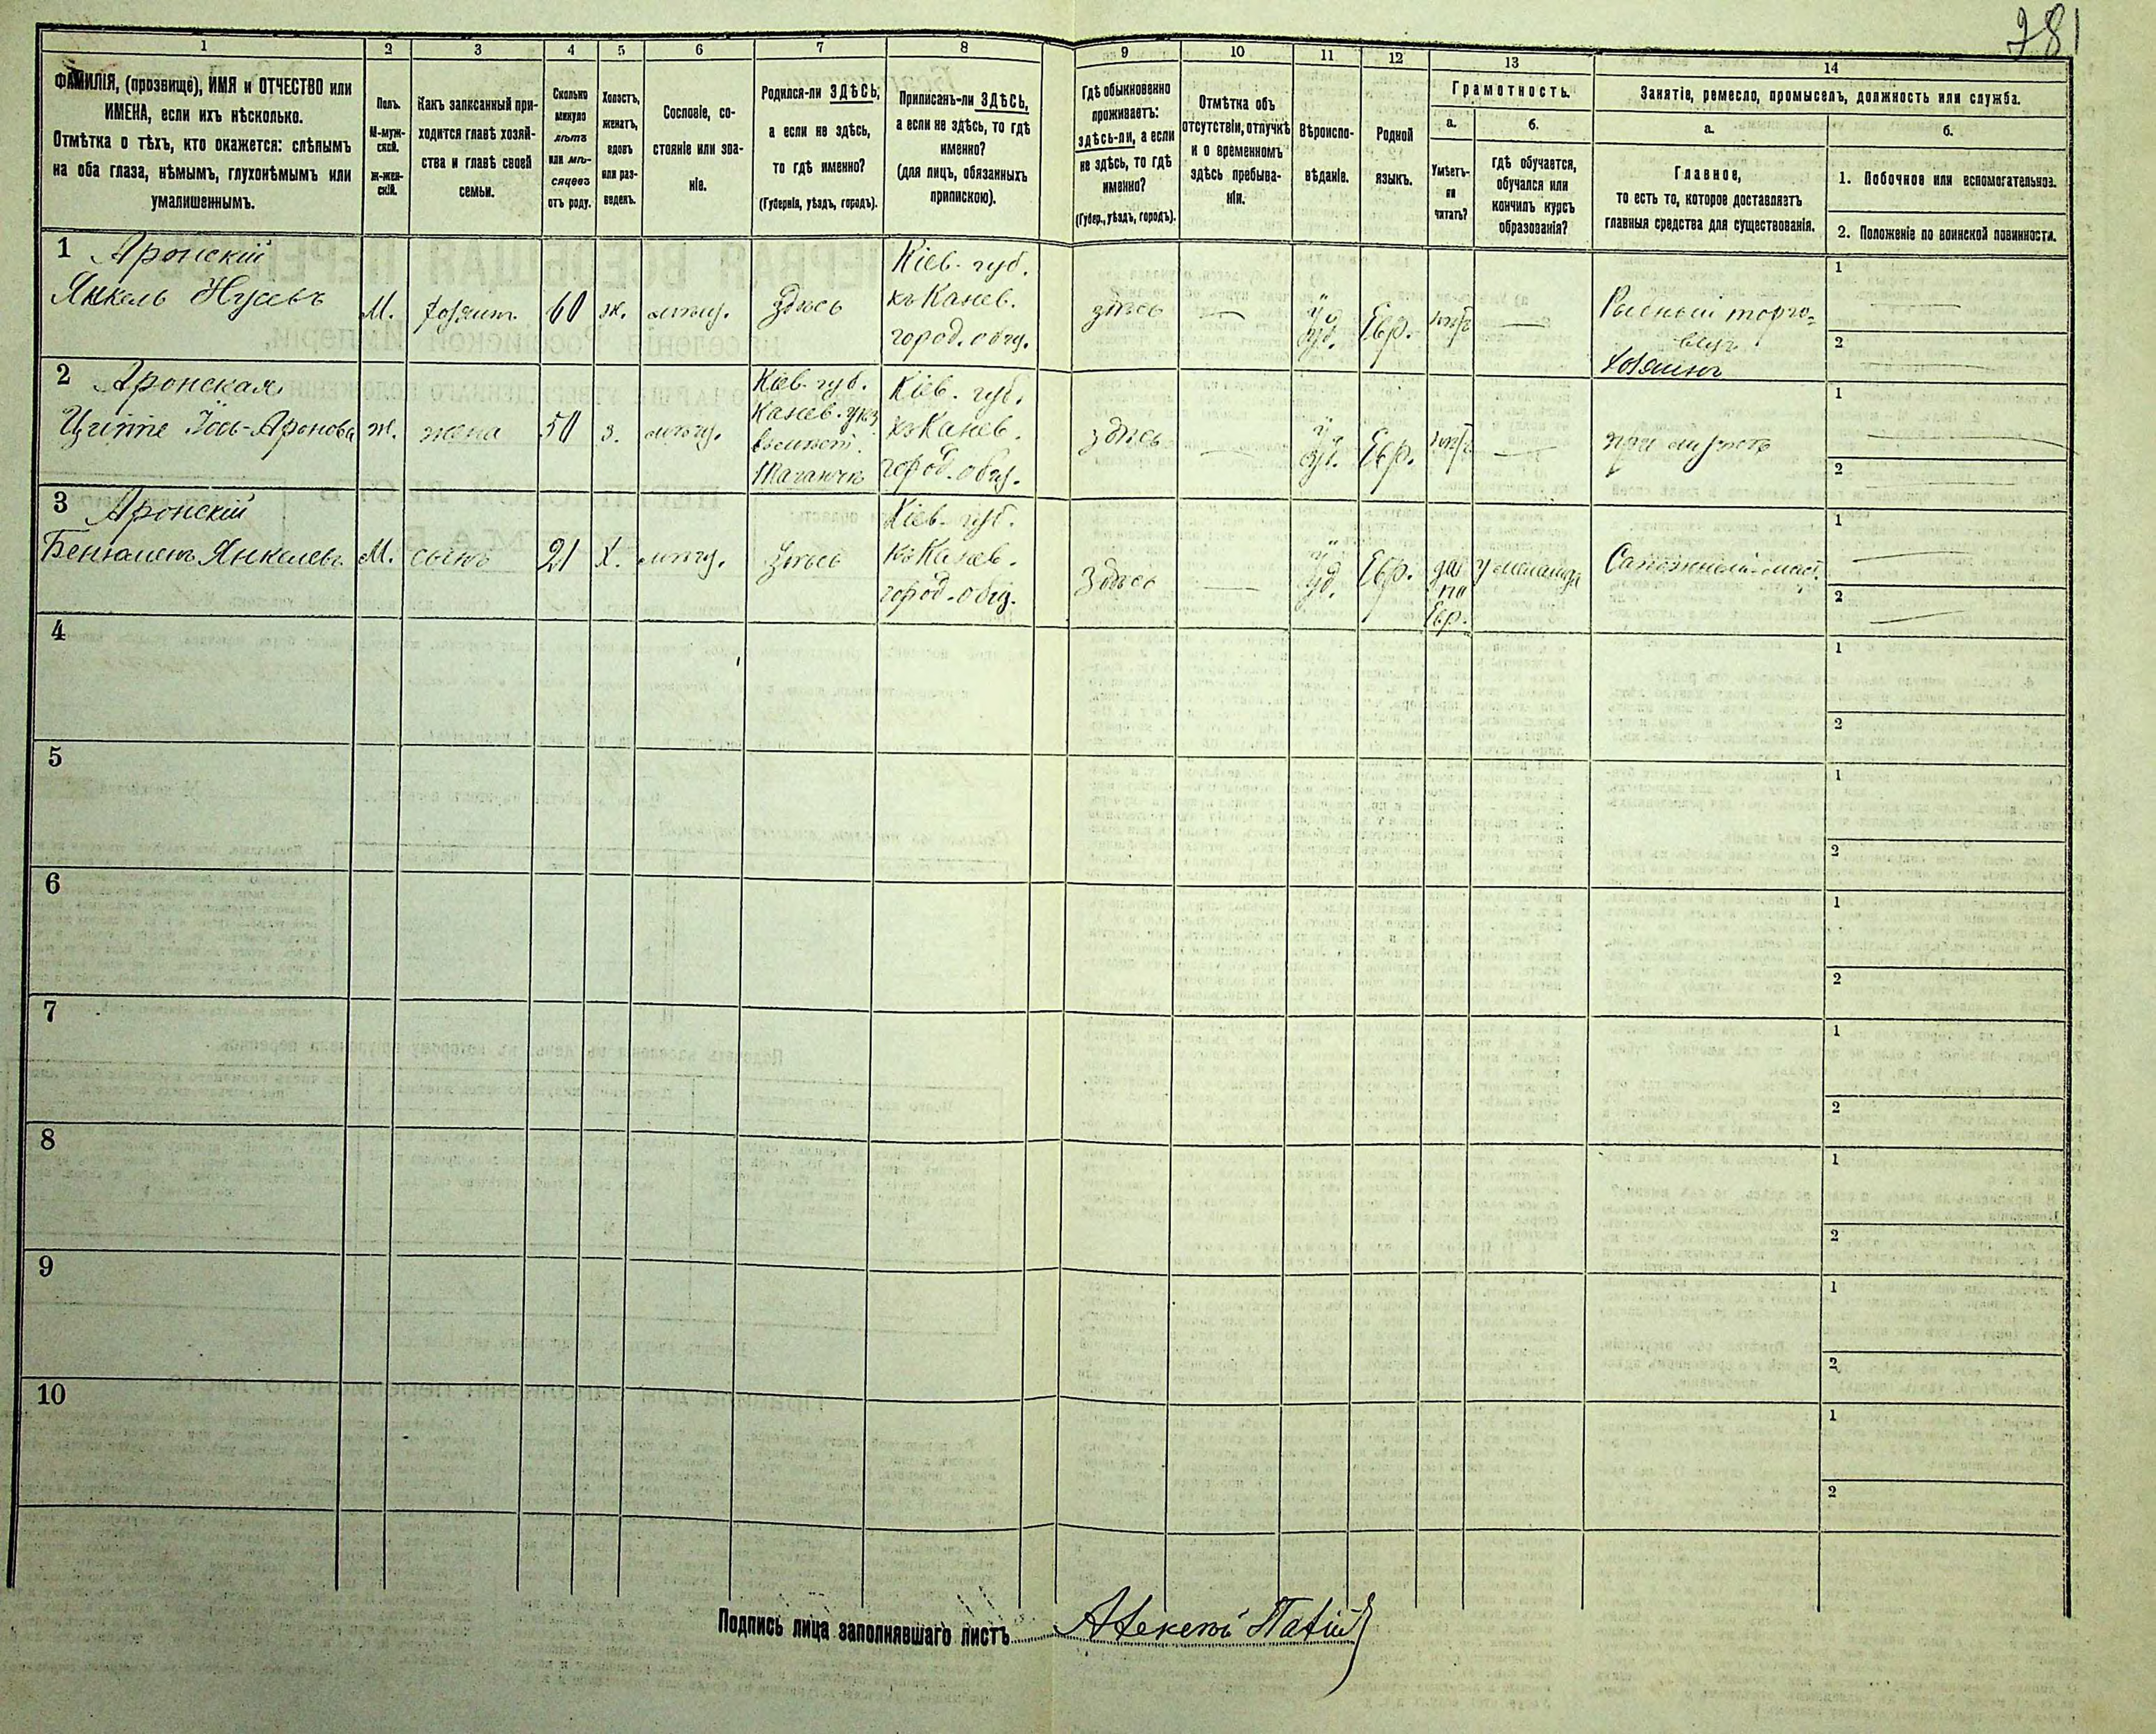 281
1 2 3 4 5 6 7 8 9 10 11 12 13 14
ФАМИЛІЯ, (прозвище), ИМЯ и ОТЧЕСТВО или
ИМЕНА, если ихъ нѣсколько.
Отмѣтка о тѣхъ, кто окажется: слѣпымъ
на оба глаза, нѣмымъ, глухонѣмымъ или
умалишеннымъ.
Полъ.
М-муж-
ской.
Ж-жен-
скій.
Какъ записанный при-
ходится главѣ хозяй-
ства и главѣ своей
семьи.
Сколько
минуло
лѣтъ
или мѣ-
сяцевъ
отъ роду.
Холостъ,
женатъ,
вдовъ
или раз-
веденъ.
Сословіе, со-
стояніе или зва-
ніе.
Родился-ли ЗДѢСЬ,
а если не здѣсь,
то гдѣ именно?
(Губернія, уѣздъ, городъ).
Приписанъ-ли ЗДѢСЬ,
а если не здѣсь, то гдѣ
именно?
(для лицъ, обязанныхъ
припискою).
Гдѣ обыкновенно
проживаетъ:
здѣсь-ли, а если
не здѣсь, то гдѣ
именно?
(Губер., уѣздъ, городъ).
Отмѣтка объ
отсутствіи, отлучкѣ
и о временномъ
здѣсь пребыва-
ніи.
Вѣроиспо-
вѣданіе.
Родной
языкъ.
Грамотность.
а.
Умѣетъ-
ли
читать?
б.
гдѣ обучается,
обучался или
кончилъ курсъ
образованія?
Занятіе, ремесло, промыселъ, должность или служба.
а.
Главное,
то есть то, которое доставляетъ
главныя средства для существованія.
б.
1. Побочное или вспомогательное.
2. Положеніе по воинской повинности.
1 Аронскій
Янкель Нусевъ
М.
хозяин.
60
ж.
мѣщ.
Здѣсь
Кіев. губ.
къ Канев.
город. общ.
здѣсь
—
Іуд.
Евр.
—
Рыбный торго-
вец
хозяинъ
1 —
2 —
2 Аронская
Іось-Аронова
ж.
жена
50
з.
мѣщ.
Кіев. губ.
Канев. уѣз.
Кіев. губ.
къ Канев.
город. общ.
здѣсь
—
Іуд.
Евр.
—
при мужѣ
1 —
2 —
3 Аронскій
Янкелев.
М.
сынъ
21
Х.
мѣщ.
Здѣсь
Кіев. губ.
къ Канев.
город. общ.
Здѣсь
—
Іуд.
Евр.
да
по
Евр.
у меламда
Сапожный маст.
1 —
2 —
4
1
2
5
1
2
6
1
2
7
1
2
8
1
2
9
1
2
10
1
2
Подпись лица заполнявшаго листъ